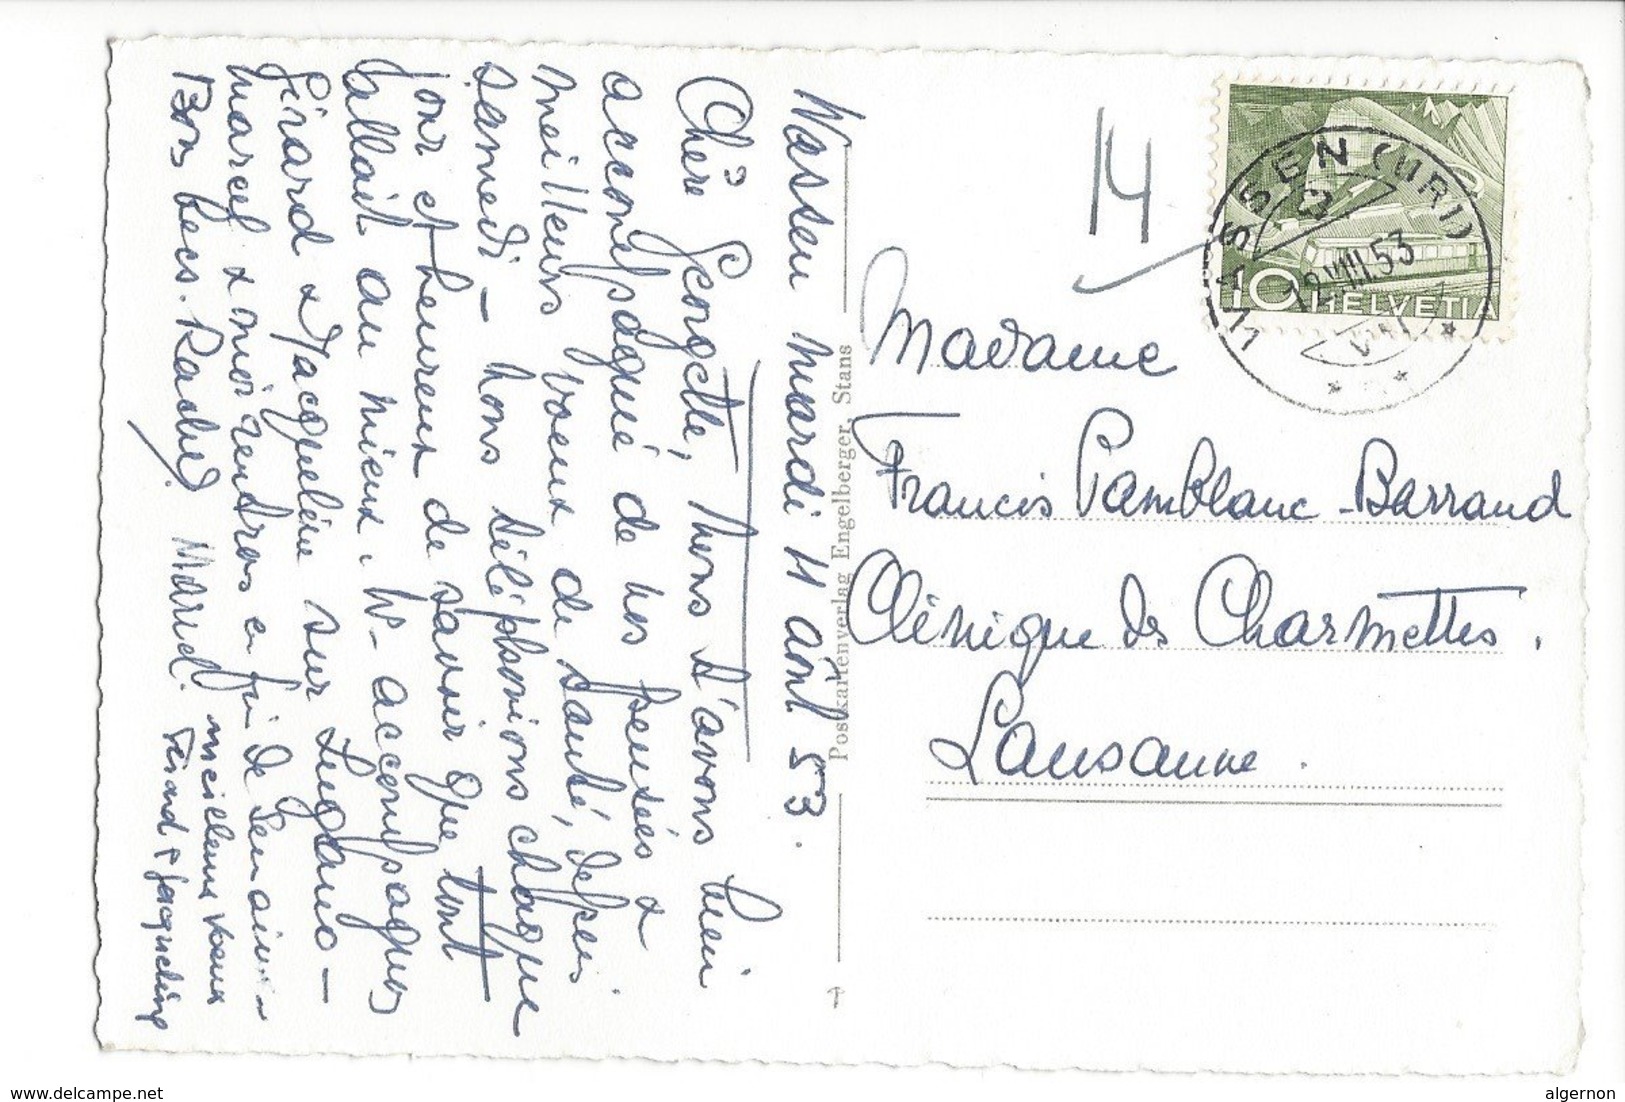 Wassen mardi 11 août 53.
Chère Georgette, Nous t'avons bien
accompagné de nos pensées &
meilleurs voeux de santé, depuis
samedi - nous téléphonions chaque
jour et heureux de savoir que tout
allait au mieux. Ns accompagnons
Gérard & Jacqueline sur Lugano -
Marcel & moi rentrons en fin de semaine -
Bons becs. Rachel. Marcel.
meilleurs voeux
Gérard & Jacqueline
Postkartenverlag Engelberger, Stans
14
WASSEN (URI)
12.VIII.53
10 HELVETIA
Madame
Francis Pamblanc-Barraud
Clinique des Charmettes.
Lausanne.
www.delcampe.net
algernon